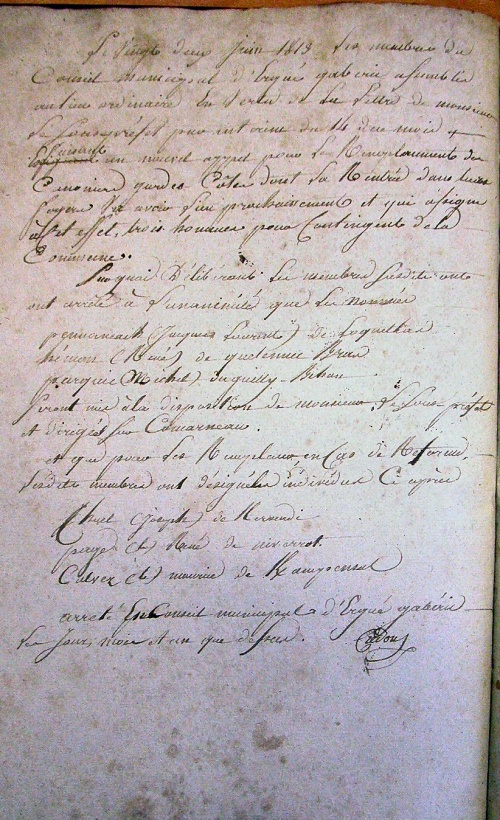 Le vingt deux Juin 1813 les membres du
Conseil municipal d'Ergué gaberic assemblés
au lieu ordinaire En Vertu de la Lettre de monsieur
Le Souspréfet par interim du 14 du mois
faisant un nouvel appel pour le Remplacement de
Canoniers gardes Côtes dont la Rentrée dans leurs
foyers aura lieu prochainement et qui assigne
à cet effet, trois hommes pour Contingent de la
Commune.
Sur quoi Délibérant les membres susdits ont
ont arrêté à l'unanimité que les nommés
pennaneach (Jacques Laurent) de Loqueltas
hemon (René) de quelennec Bras
(Michel) Bihan
Seront mis à la disposition de monsieur le Sous préfet
et dirigés sur Concarneau.
et que pour les Remplacer en Cas de Reforme,
Les dits membres ont désignés les individus Ci après
huet (Joseph) de Kerveadi
René de niverrot
Calvez maurice de
arrêté En Conseil municipal d'Ergué gaberic
Les Jour, mois et an que dessus.